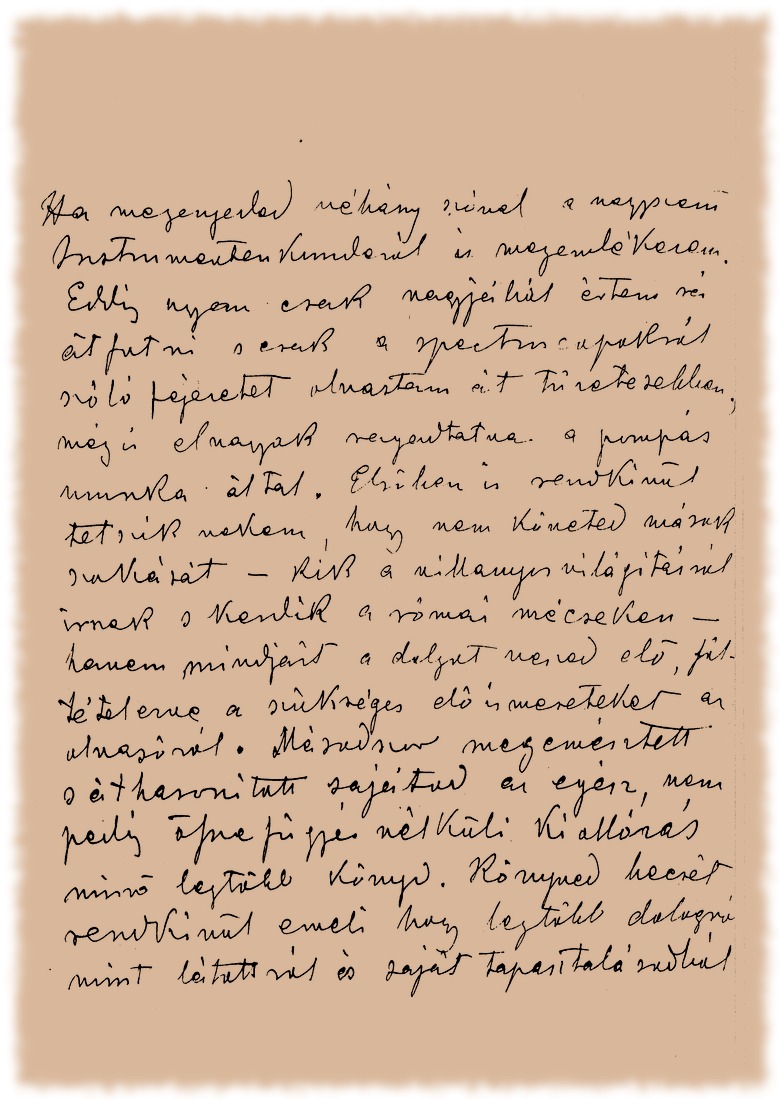 Ha megengeded néhány szóval a nagyszerű
Instrumentenkundáról is megemlékezem.
Eddig ugyan csak nagyjából értem rá
átfutni s csak a spectroscopokról
szóló fejezetet olvastam át tüzetesebben,
még is el vagyok ragadtatva a pompás
munka által. Elsőben is rendkivül
tetszik nekem, hogy nem követed mások
szokását – kik a villanyos világításról
írnak s kezdik a római mécseken –
hanem mindjárt a dolgot veszed elő, föl-
tételezve a szükséges előismereteket az
olvasóról. Másodszor megemésztett
s áthasonított sajátod az egész, nem
pedig összefüggés nélküli kiollózás
minő legtöbb könyv. Könyved becsét
rendkivül emeli hogy legtöbb dologról
mint látottról és saját tapasztalásodból